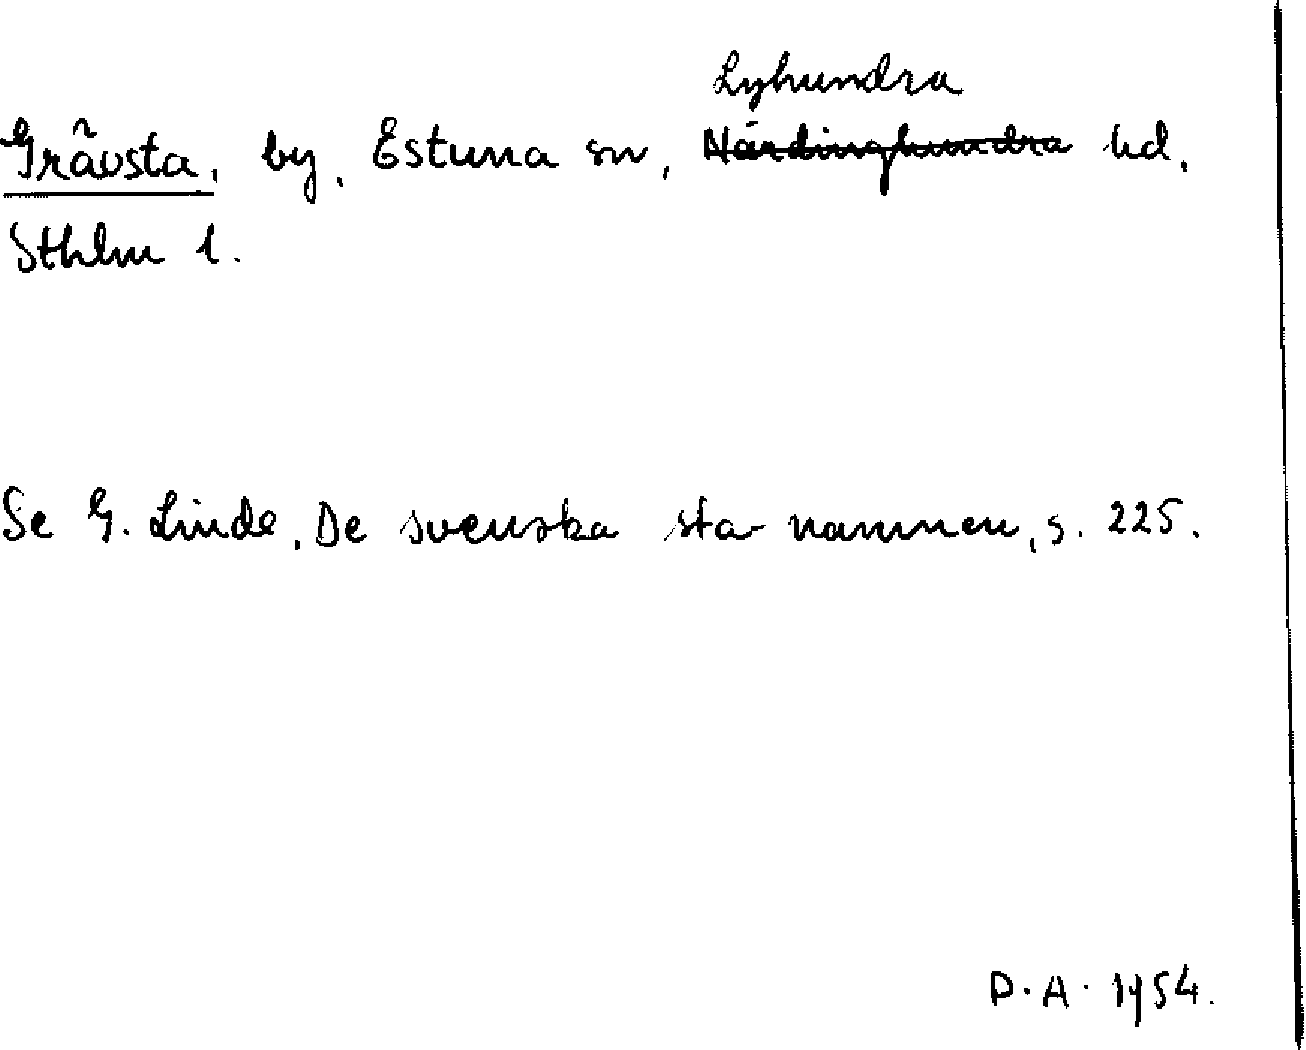 Lyhundra
Gråvsta, by, Estuna sn, Närdinghundra hd.
Sthlm l.
Se G. Linde, De svenska sta-namnen, s. 225.
D. A. 1954.